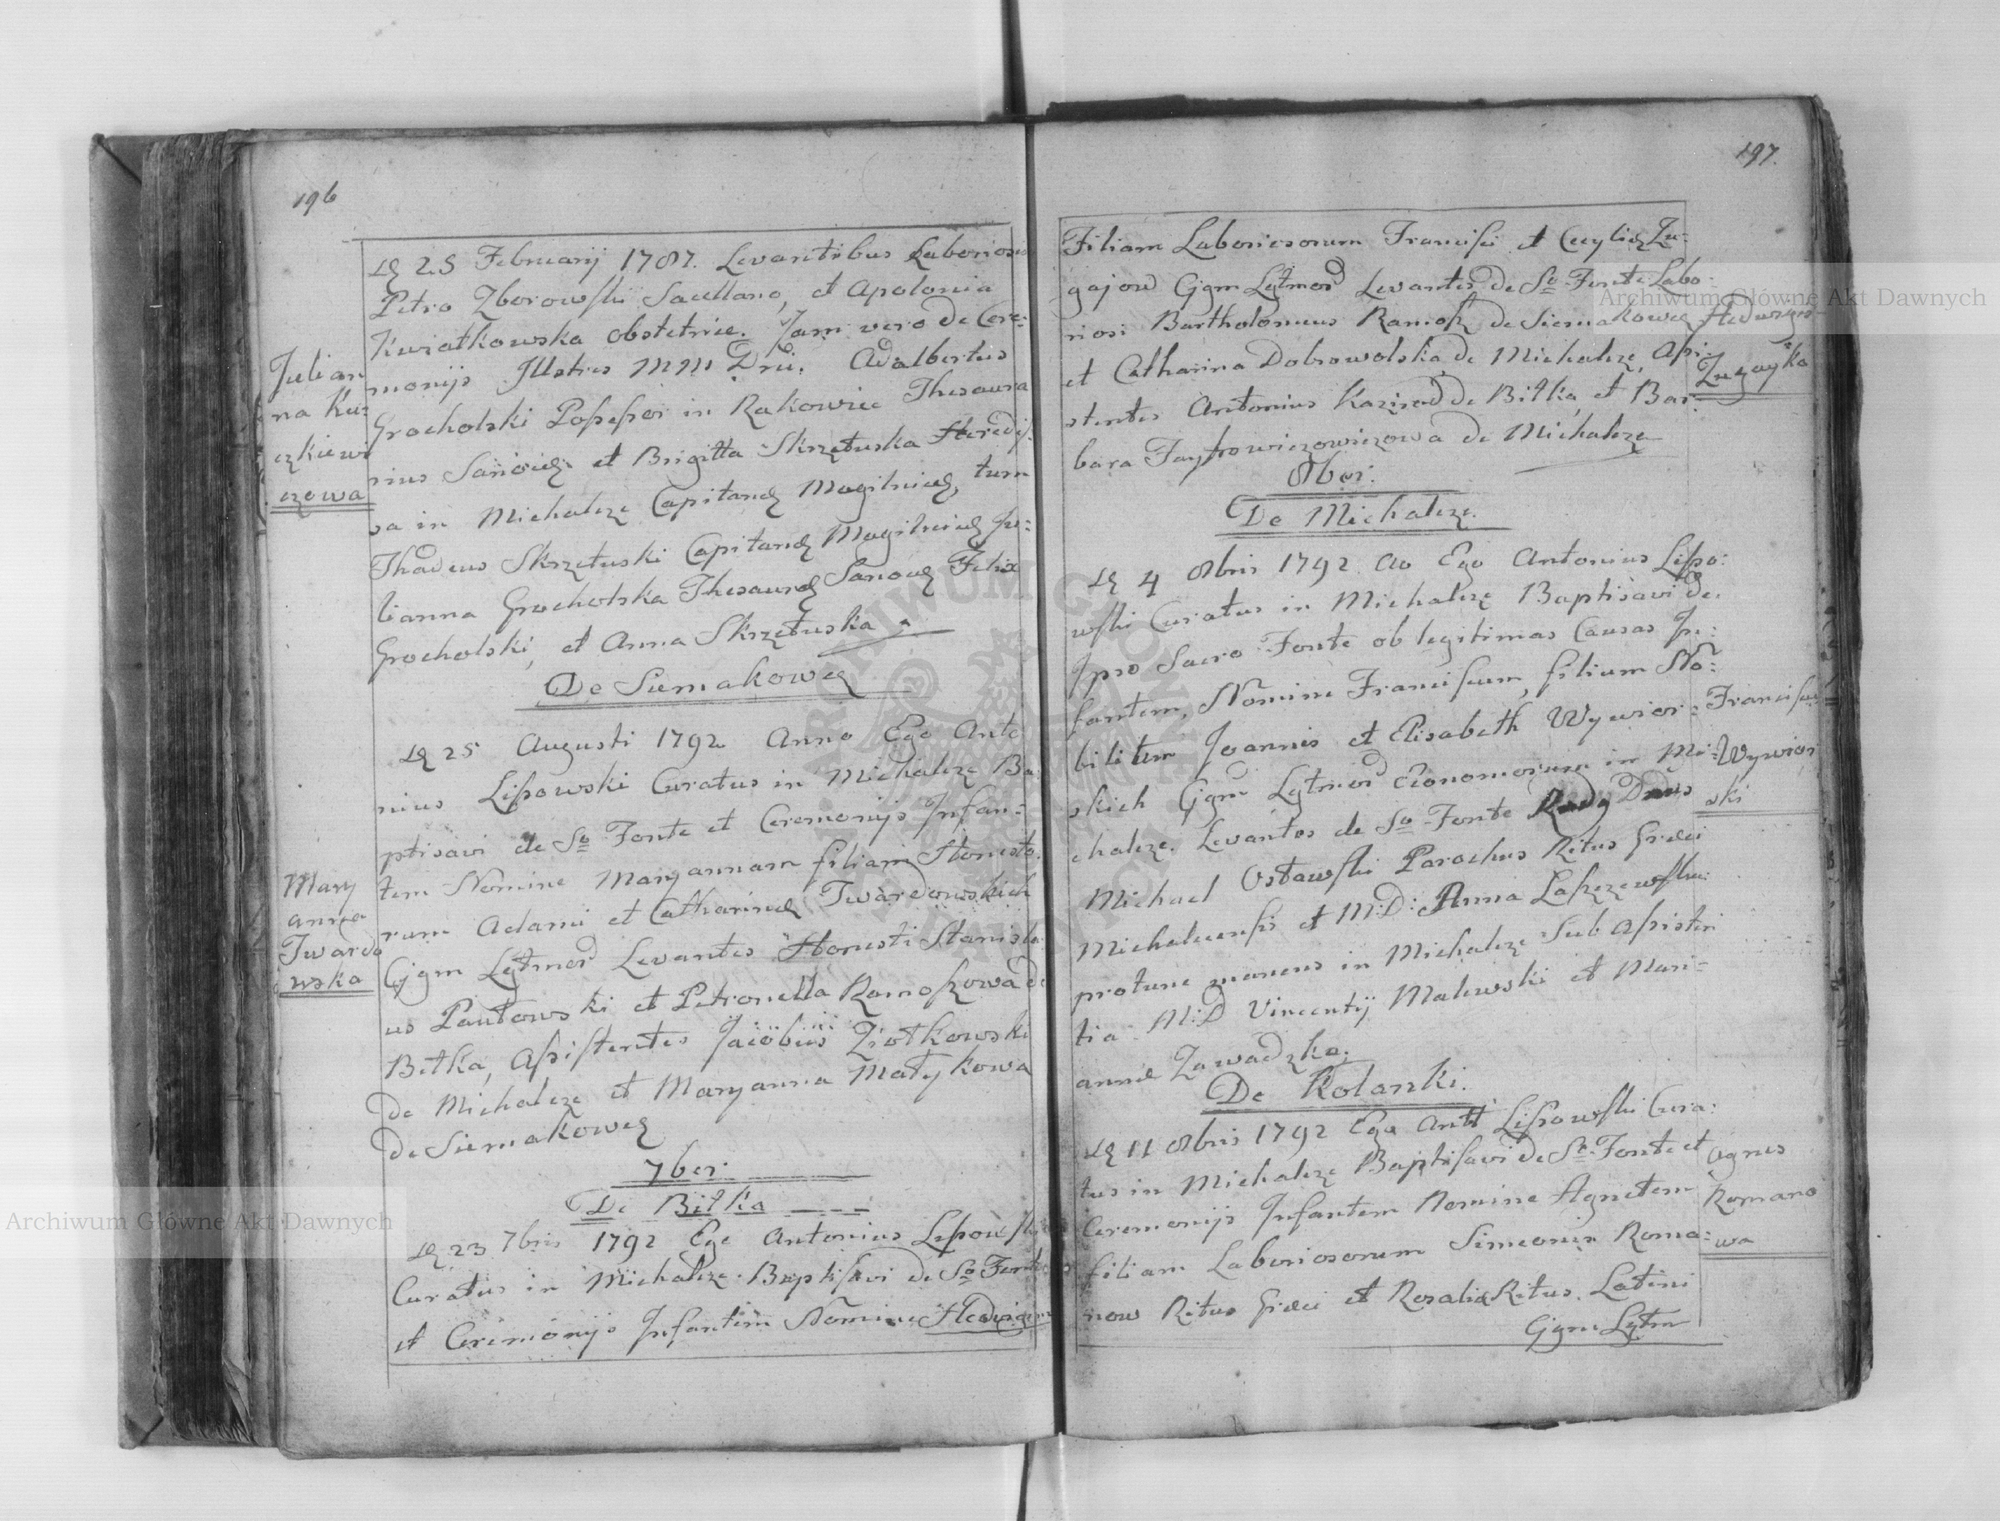 196
D 25 Februarij 1787. Levantibus Laboriosis
Petro Zborowski Sacellano, et Apolonia
Kwiatkowska obstetrice. Jam vero de Cere:
monijs Illstres MM Dni. Adalbertus
Grocholski Possessor in Rakowiec Thesaura
rius Sanocię et Brigitta Skrzetuska Heredis:
sa in Michalcze Capitanę Mogilnicę, tum
Thadeus Skrzetuski Capitanę Mogilnicę Ju:
lianna Grocholska Thesaurę Sanocę Felix
Grocholski, et Anna Skrzetuska
Julian
na Ku:
czkiewi
czowa
De Siemakowce
D 25 Augusti 1792 Anno Ego Anto
nius Lipowski Curatus in Michalcze Ba
ptisavi de So Fonte et Ceremonijs Infan:
tem Nomine Maryannam filiam Honesto
rum Adami et Catharinę Twardowskich
Cjgm Lgtmor Levantes Honesti Stanisla
us Pautowski et Petronella Ramoszowa de
Bilka, Assistentes Jacobus Ziołkowski
de Michalcze et Maryanna Małykowa
de Siemakowce
Mary
anna
Twardo
wska
7ber.
De Bilka
D 23 7bris 1792 Ego Antonius Lipowski
Curatus in Michalcze Baptisavi de So Fonte
et Ceremonijs Infantem Nomine Hedvigem
197.
Filiam Laboriosorum Francisci et Cecylię Zu:
gajow Cjgm Lgtmor Levantes de So Fonte Labo:
riosi Bartholomeus Ramosz de Siemakowce
et Catharina Dobrowolska de Michalcze, Assi:
stentes Antonius Kazirod de Bilka, et Bar:
bara de Michalcze
Hedwigis
Zugayka
8ber.
De Michalcze.
D 4 8bris 1792 Ao Ego Antonius Lipo:
wski Curatus in Michalcze Baptisavi de
Ipso Sacro Fonte ob legitimas Causas In:
fantem, Nomine Franciscum, filium No:
bilium Joannis et Elisabeth Wywior:
skich Cjgm Lgtmor Economorum in Mi:
chalcze. Levantes de So Fonte Rndg Dnus
Michael Ostawski Parochus Ritus Greci
Michalcensis et M:D: Anna Laszczewska
protunc manens in Michalcze Sub Assisten
tia M:D Vincentij Malewski et Mari:
annę Zawadzka.
Franciscus
Wywior
ski
De Kolanki.
D 11 8bris 1792 Ego Antt Lipowski Cura:
tus in Michalcze Baptisavi de So Fonte et
Ceremonijs Infantem Nomine Agnetem
filiam Laboriosorum Simeonis Roma:
now Ritus Greci et Rosalię Ritus Latini
Cjgm Lgtm
Agnes
Romano
wa
ARCHIWUM GŁÓWNE AKT DAWNYCH
Archiwum Główne Akt Dawnych
Archiwum Główne Akt Dawnych